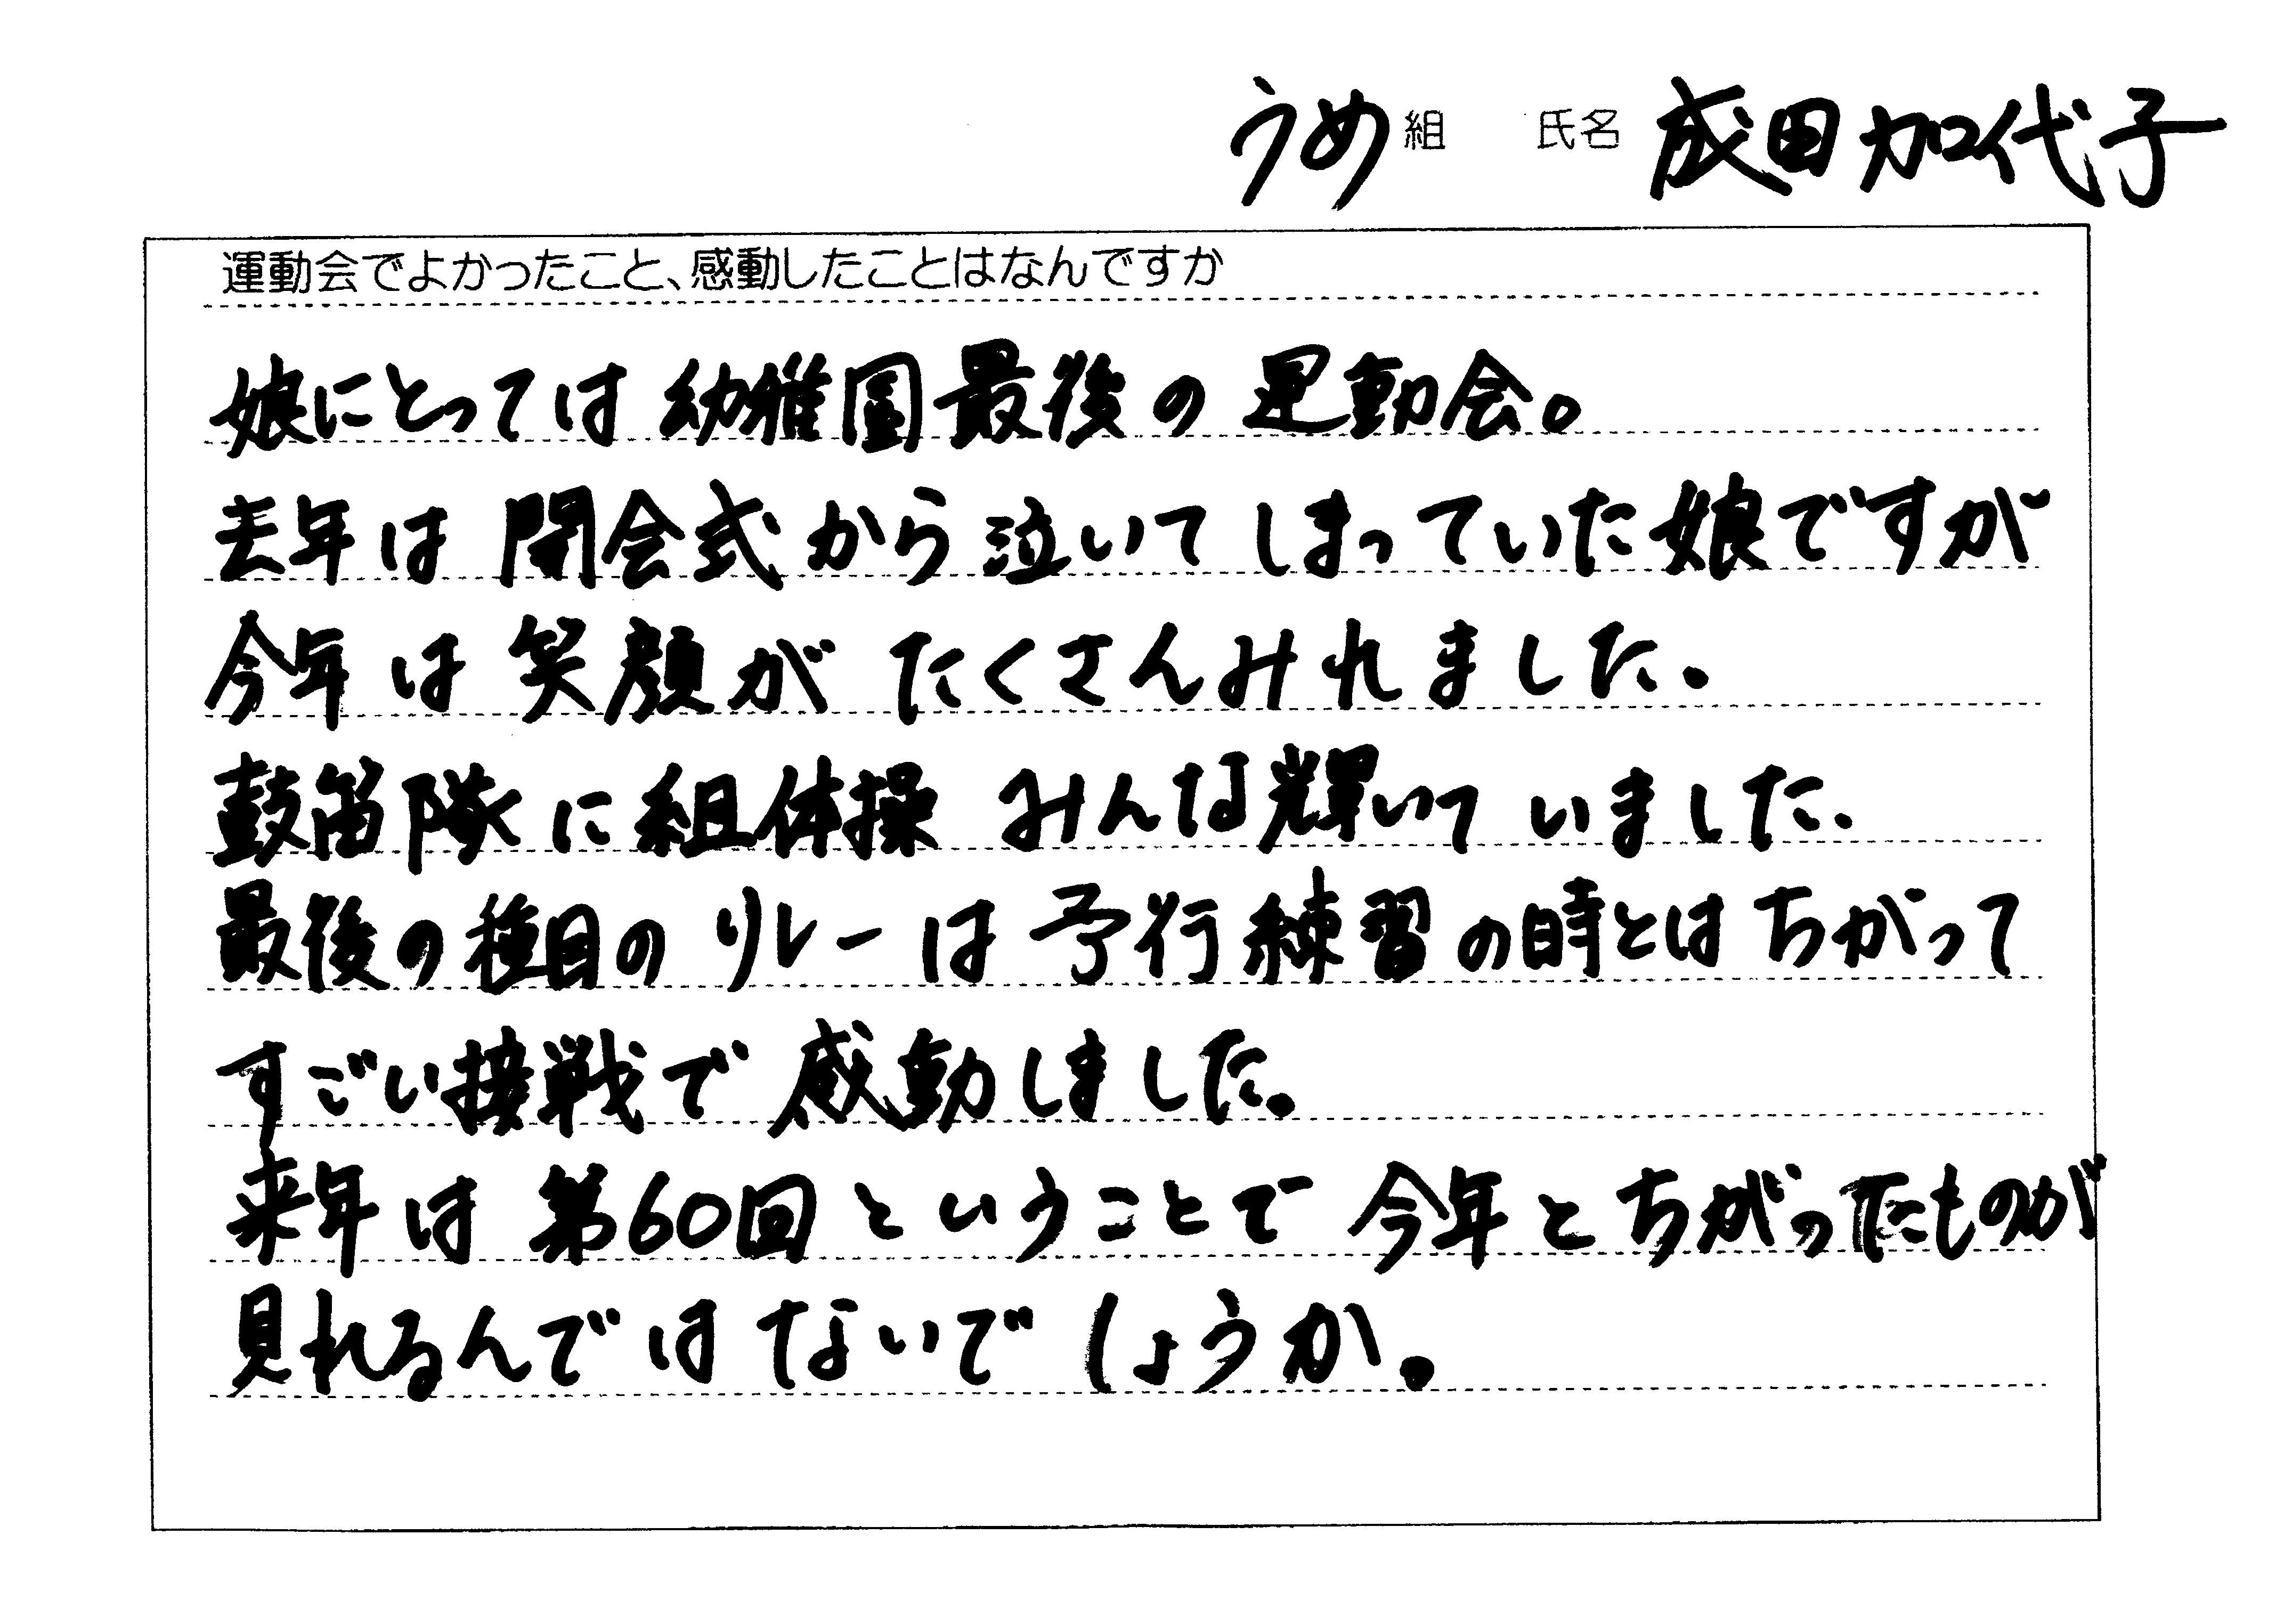 うめ組 氏名 成田加代子
運動会でよかったこと、感動したことはなんですか
娘にとっては幼稚園最後の運動会。
去年は開会式から泣いてしまっていた娘ですが
今年は笑顔がたくさんみれました。
鼓笛隊に組体操 みんな輝いていました。
最後の種目のリレーは予行練習の時とはちがって
すごい接戦で感動しました。
来年は第60回ということで今年とちがったものが
見れるんではないでしょうか。